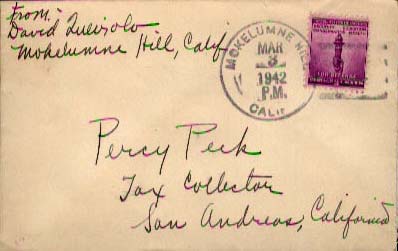 From:-
David Quirolo
Mokelumne Hill, Calif
MOKELUMNE HILL
MAR
3
1942
P.M.
CALIF
FOR DEFENSE
Percy Peek
Tax Collector
San Andreas, California